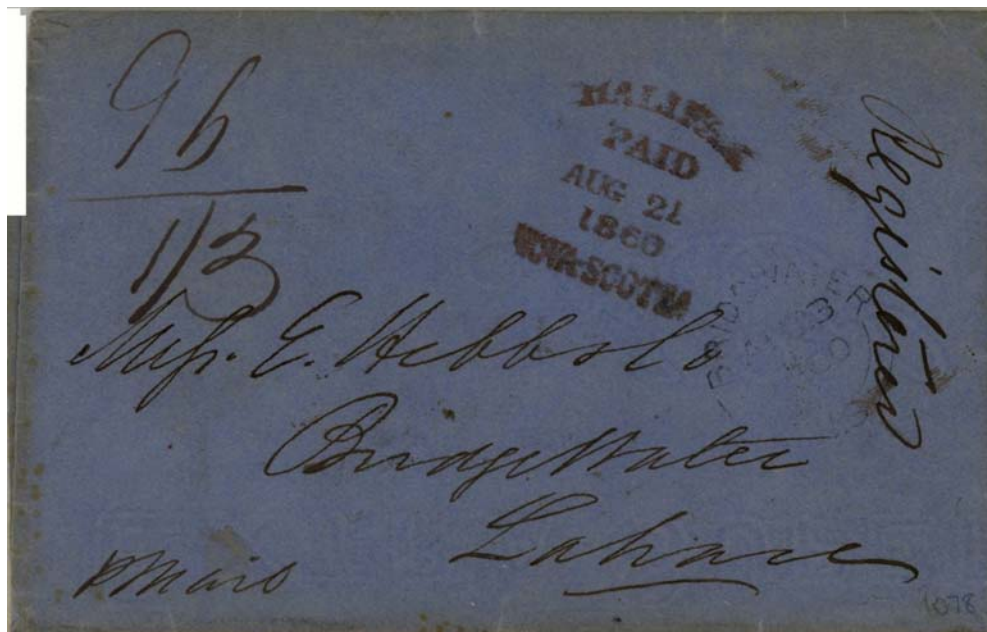 96
1/3
HALIFAX
PAID
AUG 21
1860
NOVA-SCOTIA
Registered
BRIDGEWATER
AU 23
60
Miss. E. Hebb
Bridge Water
Lahave
p Mail
1078